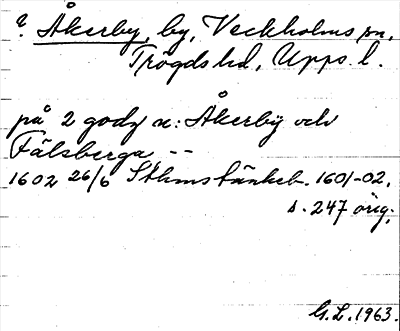 ? Åkerby, by, Veckholms sn,
Trögds hd, Upps. l.
på 2 godz u: Åkerbÿ och
Fälsberga --
1602 26/6 Sthms tänkeb. 1601-02,
s. 247 orig.
G.L. 1963.